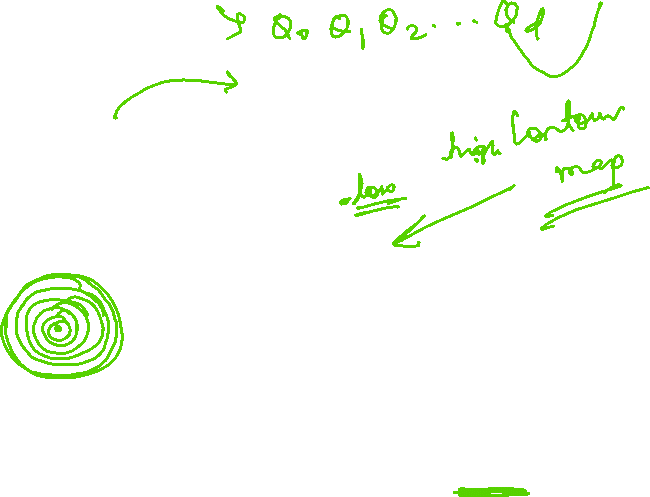 θ₀ θ₁ θ₂ ... θd
high Contour
map
low